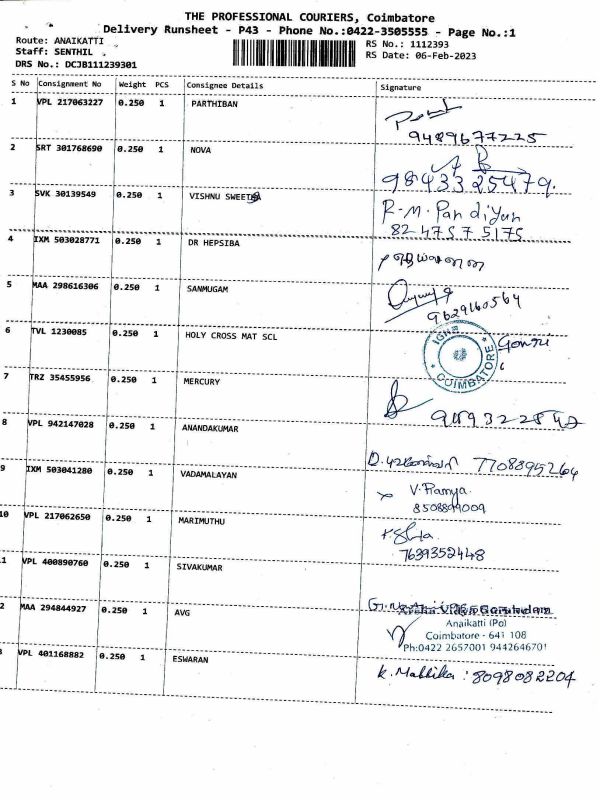 THE PROFESSIONAL COURIERS, Coimbatore
Delivery Runsheet - P43 - Phone No.:0422-3505555 - Page No.:1
Route: ANAIKATTI
RS No.: 1112393
Staff: SENTHIL
RS Date: 06-Feb-2023
DRS No.: DCJB111239301
S No Consignment No Weight PCS Consignee Details Signature
1 VPL 217063227 0.250 1 PARTHIBAN
9489677225
2 SRT 301768690 0.250 1 NOVA
9843325479.
3 SVK 30139549 0.250 1 VISHNU
R.M. Pandiyan
82 475 75175
4 IXM 503028771 0.250 1 DR HEPSIBA
5 MAA 298616306 0.250 1 SANMUGAM
9629160564
6 TVL 1230085 0.250 1 HOLY CROSS MAT SCL
COIMBATORE
7 TRZ 35455956 0.250 1 MERCURY
8 VPL 942147028 0.250 1 ANANDAKUMAR
7708895264
9 IXM 503041280 0.250 1 VADAMALAYAN
V. Ramya
8508894009
10 VPL 217062650 0.250 1 MARIMUTHU
7639352448
1 VPL 400890760 0.250 1 SIVAKUMAR
2 MAA 294844927 0.250 1 AVG
Anaikatti (Po)
Coimbatore - 641 108
Ph:0422 2657001 9442646701
VPL 401168882 0.250 1 ESWARAN
K. Mallika : 8098082204